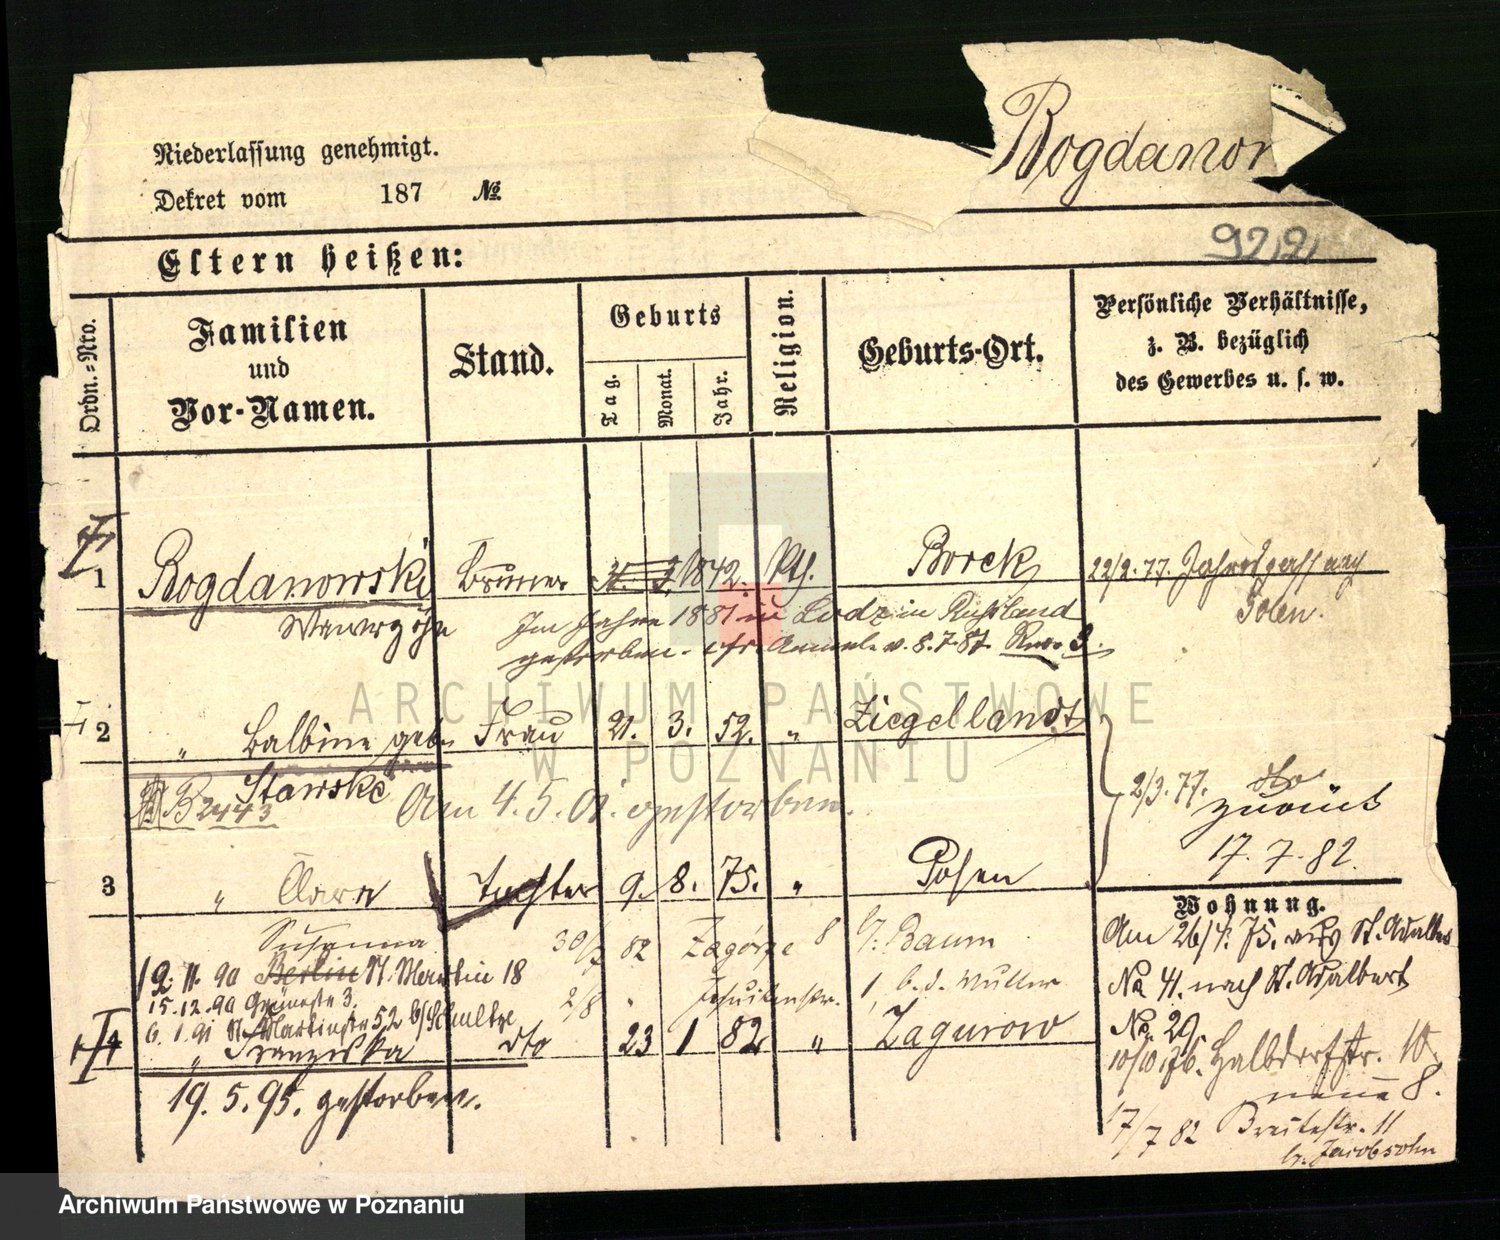 Niederlassung genehmigt.
Dekret vom 187 №
Bogdanow
922,
Eltern heißen:
Ordn.-Nro.
Familien und Vor-Namen.
Stand.
Geburts
Tag.
Monat.
Jahr.
Religion.
Geburts-Ort.
Persönliche Verhältnisse,
z. B. bezüglich
des Gewerbes u. s. w.
1 Bogdanowski 1842. Kth. Borek 22/2. 77.
Polen.
Im Jahre 1881 in Lodz in Rußland
gestorben. v. 8.7.87.
2 " Balbine geb. Frau 21. 3. 52. " Ziegellandt
Stawski
B 2443
Am 4. 5. 01. gestorben.
2/3. 77.
zurück
17. 7. 82.
3 " Clara Tochter 9. 8. 75. " Posen
Wohnung.
Susanna 30/7 82 Zagórze 8 b/: Baum
Am 26/4. 75. aus St. Adalbert
12. 11. 90 Berlin St. Martin 18
No 41. nach St. Adalbert
15.12.90 Grünestr 3. 2/8 " Jesuitenstr. 1, b. d. Müller
6. 1. 91 St. Martinstr 52 b/Schultze
No. 29.
4 " Franziska dto 23 1 82 " Zagurow
10/10. 76. Halbdorfstr. 10.
neue 8.
19. 5. 95. gestorben.
17/7 82 Breitestr. 11
b. Jacobsohn
ARCHIWUM PAŃSTWOWE
W POZNANIU
Archiwum Państwowe w Poznaniu